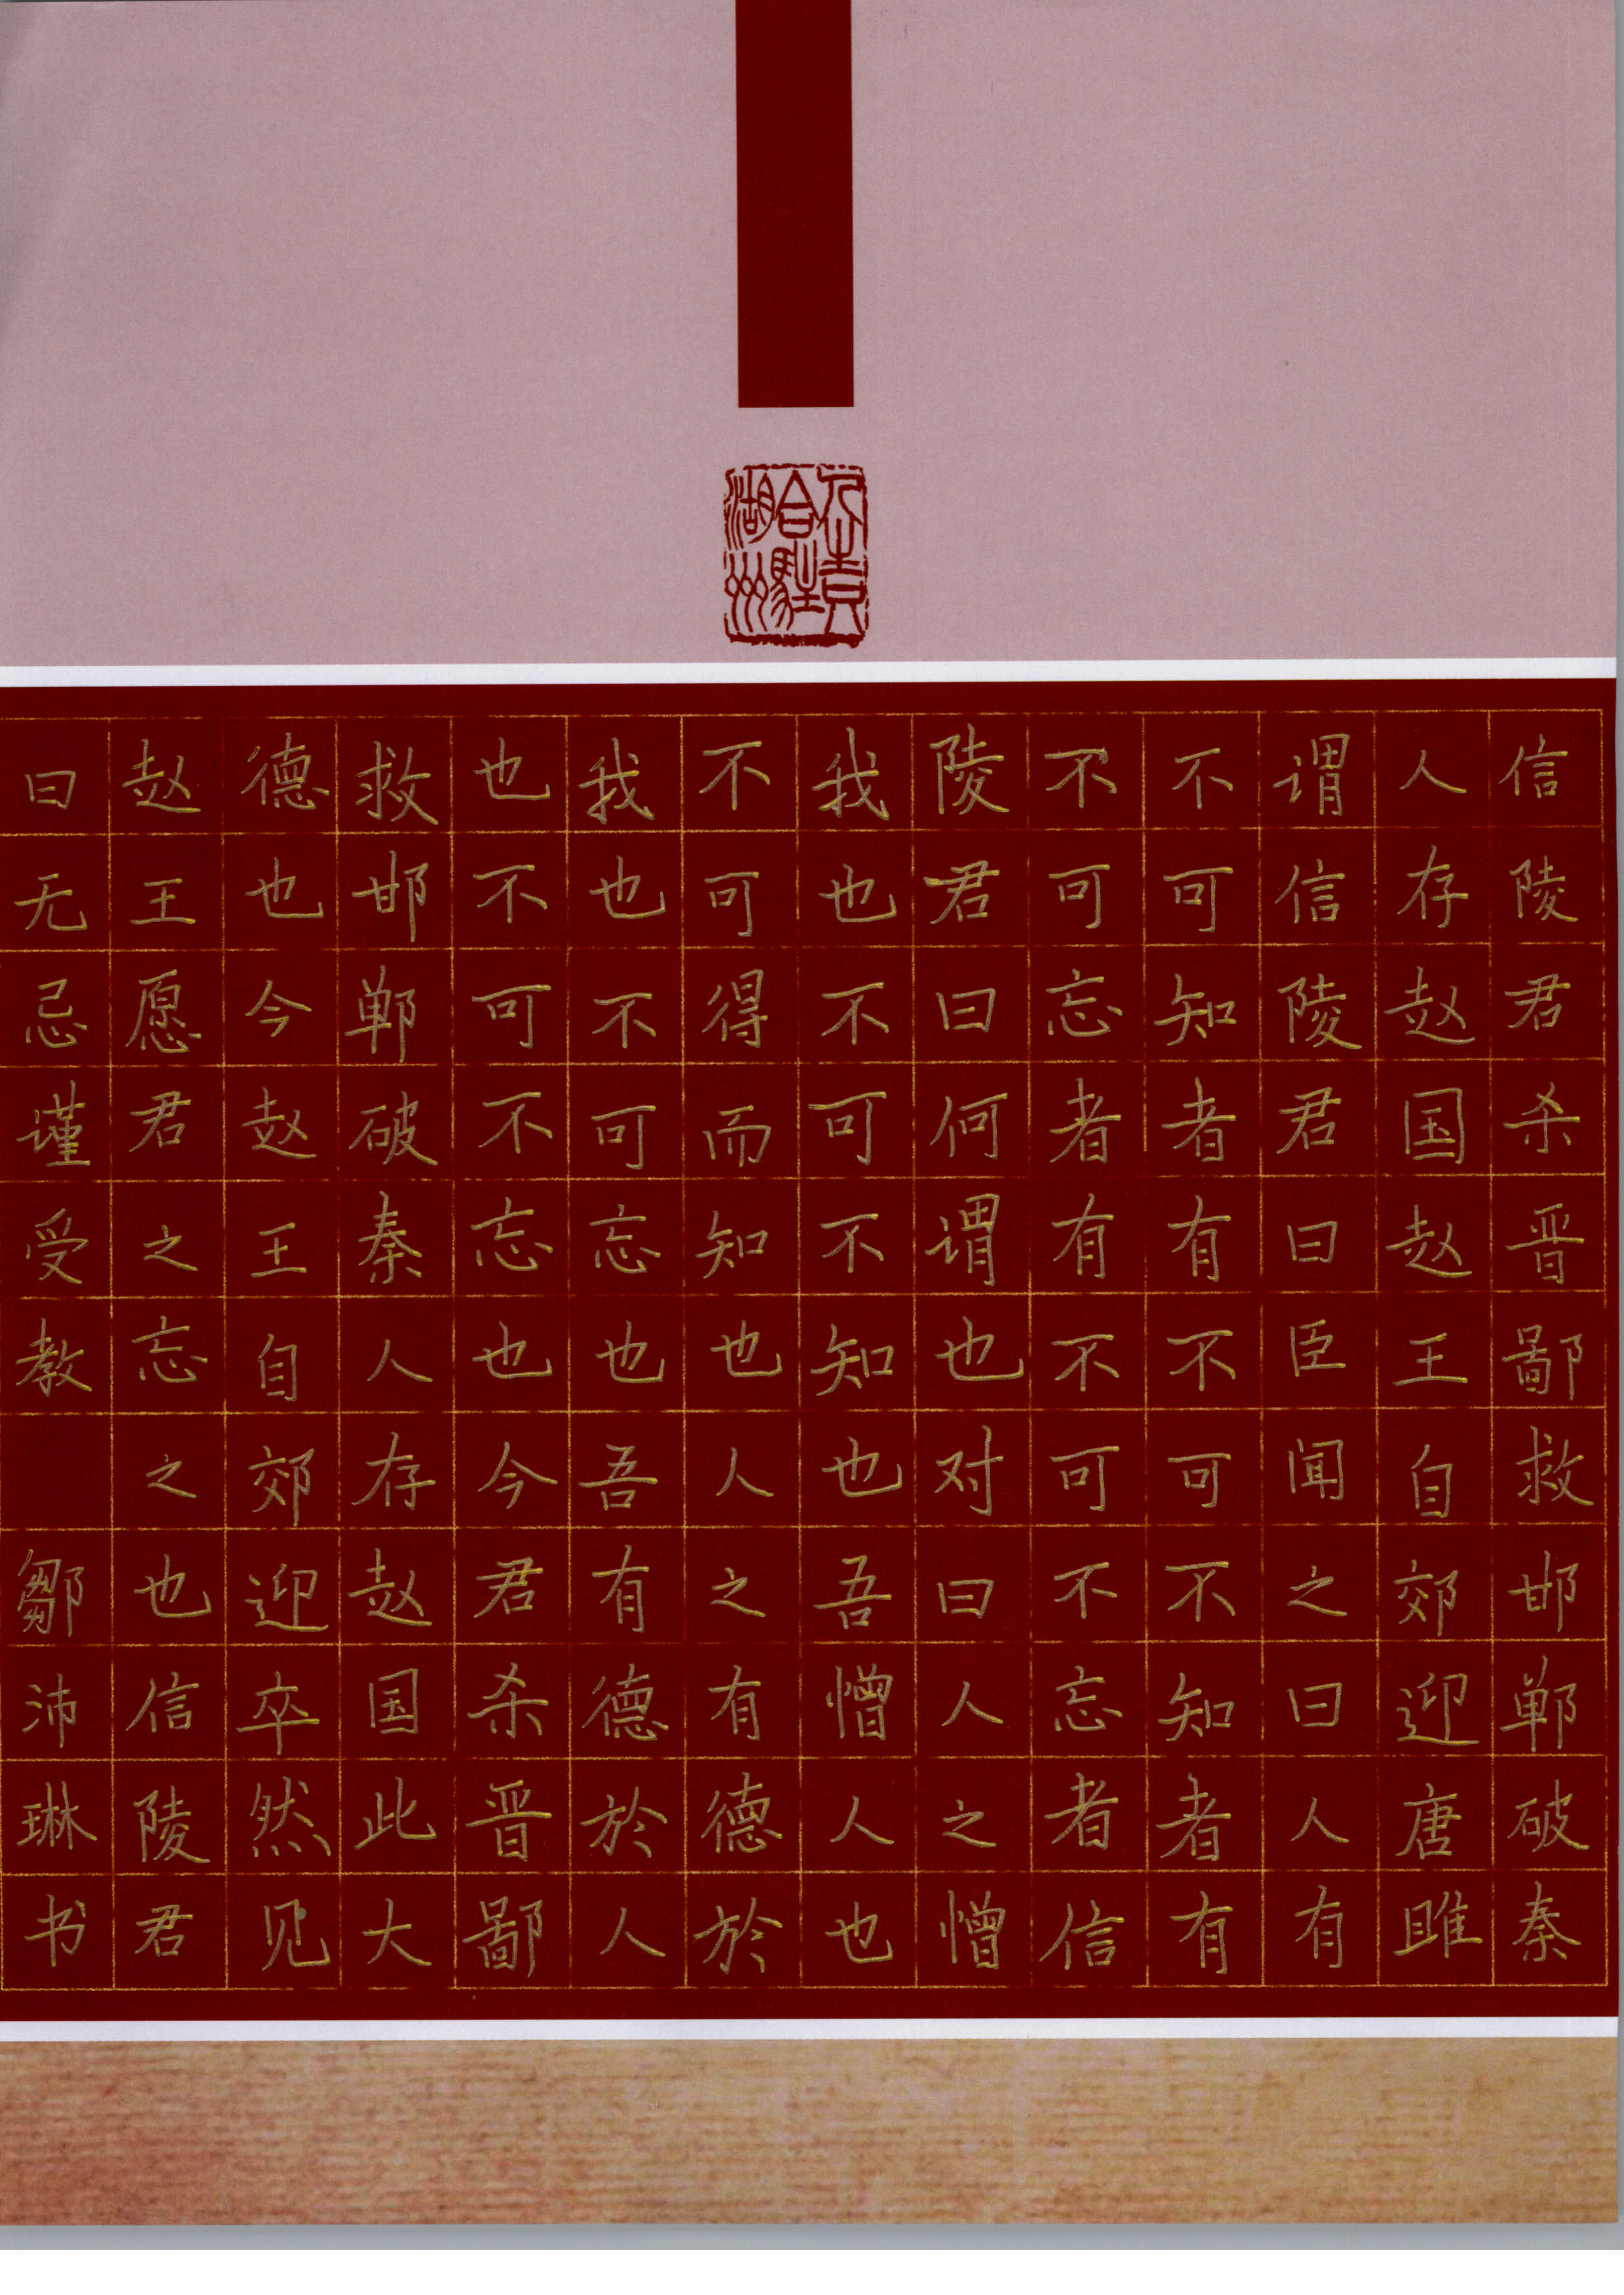 湖州
信陵君杀晋鄙救邯郸破秦
人存赵国赵王自郊迎唐雎
谓信陵君曰臣闻之曰人有
不可知者有不可不知者有
不可忘者有不可不忘者信
陵君曰何谓也对曰人之憎
我也不可不知也吾憎人也
不可得而知也人之有德於
我也不可忘也吾有德於人
也不可不忘也今君杀晋鄙
救邯郸破秦人存赵国此大
德也今赵王自郊迎卒然见
赵王愿君之忘之也信陵君
曰无忌谨受教 鄒沛琳书